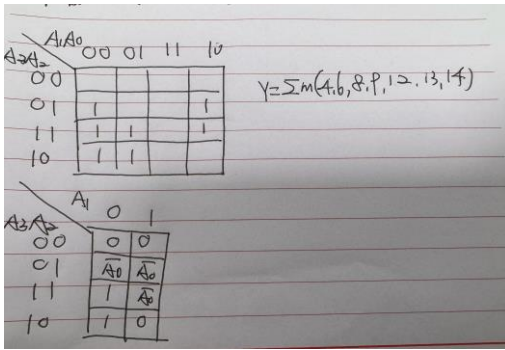 A₁A₀ 00 01 11 10
A₃A₂
00
01 1 1
11 1 1 1
10 1 1
Y=Σm(4,6,8,9,12,13,14)
A₁ 0 1
A₃A₂
00 0 0
01 A̅₀ A̅₀
11 1 A̅₀
10 1 0